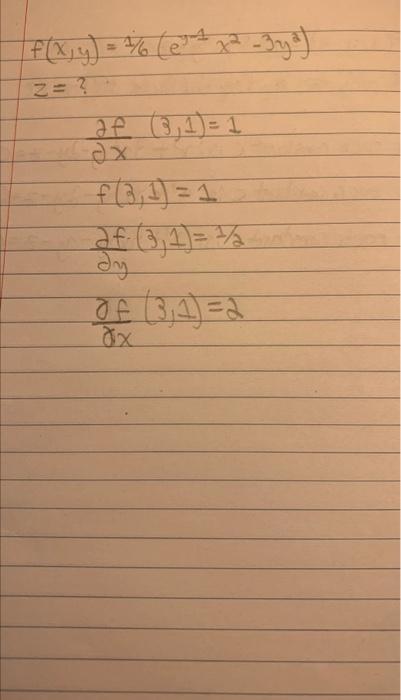 f(x,y) = 1/6 (e^{y-1} x^2 - 3y^2)
z = ?
∂f/∂x (3,1) = 1
f(3,1) = 1
∂f/∂y (3,1) = 1/2
∂f/∂x (3,1) = 2